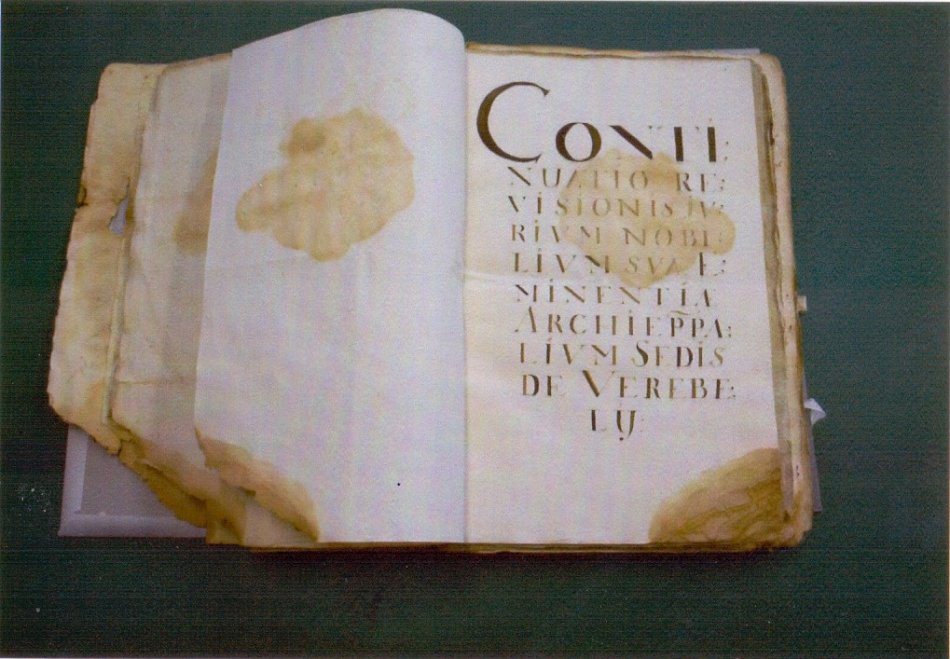 CONTI:
NUATIO RE:
VISIONIS IU:
RIVM NOBI:
LIVM SVÆ E:
MINENTIÆ
ARCHIEPP̃PA:
LIVM SEDIS
DE VEREBE:
LIJ